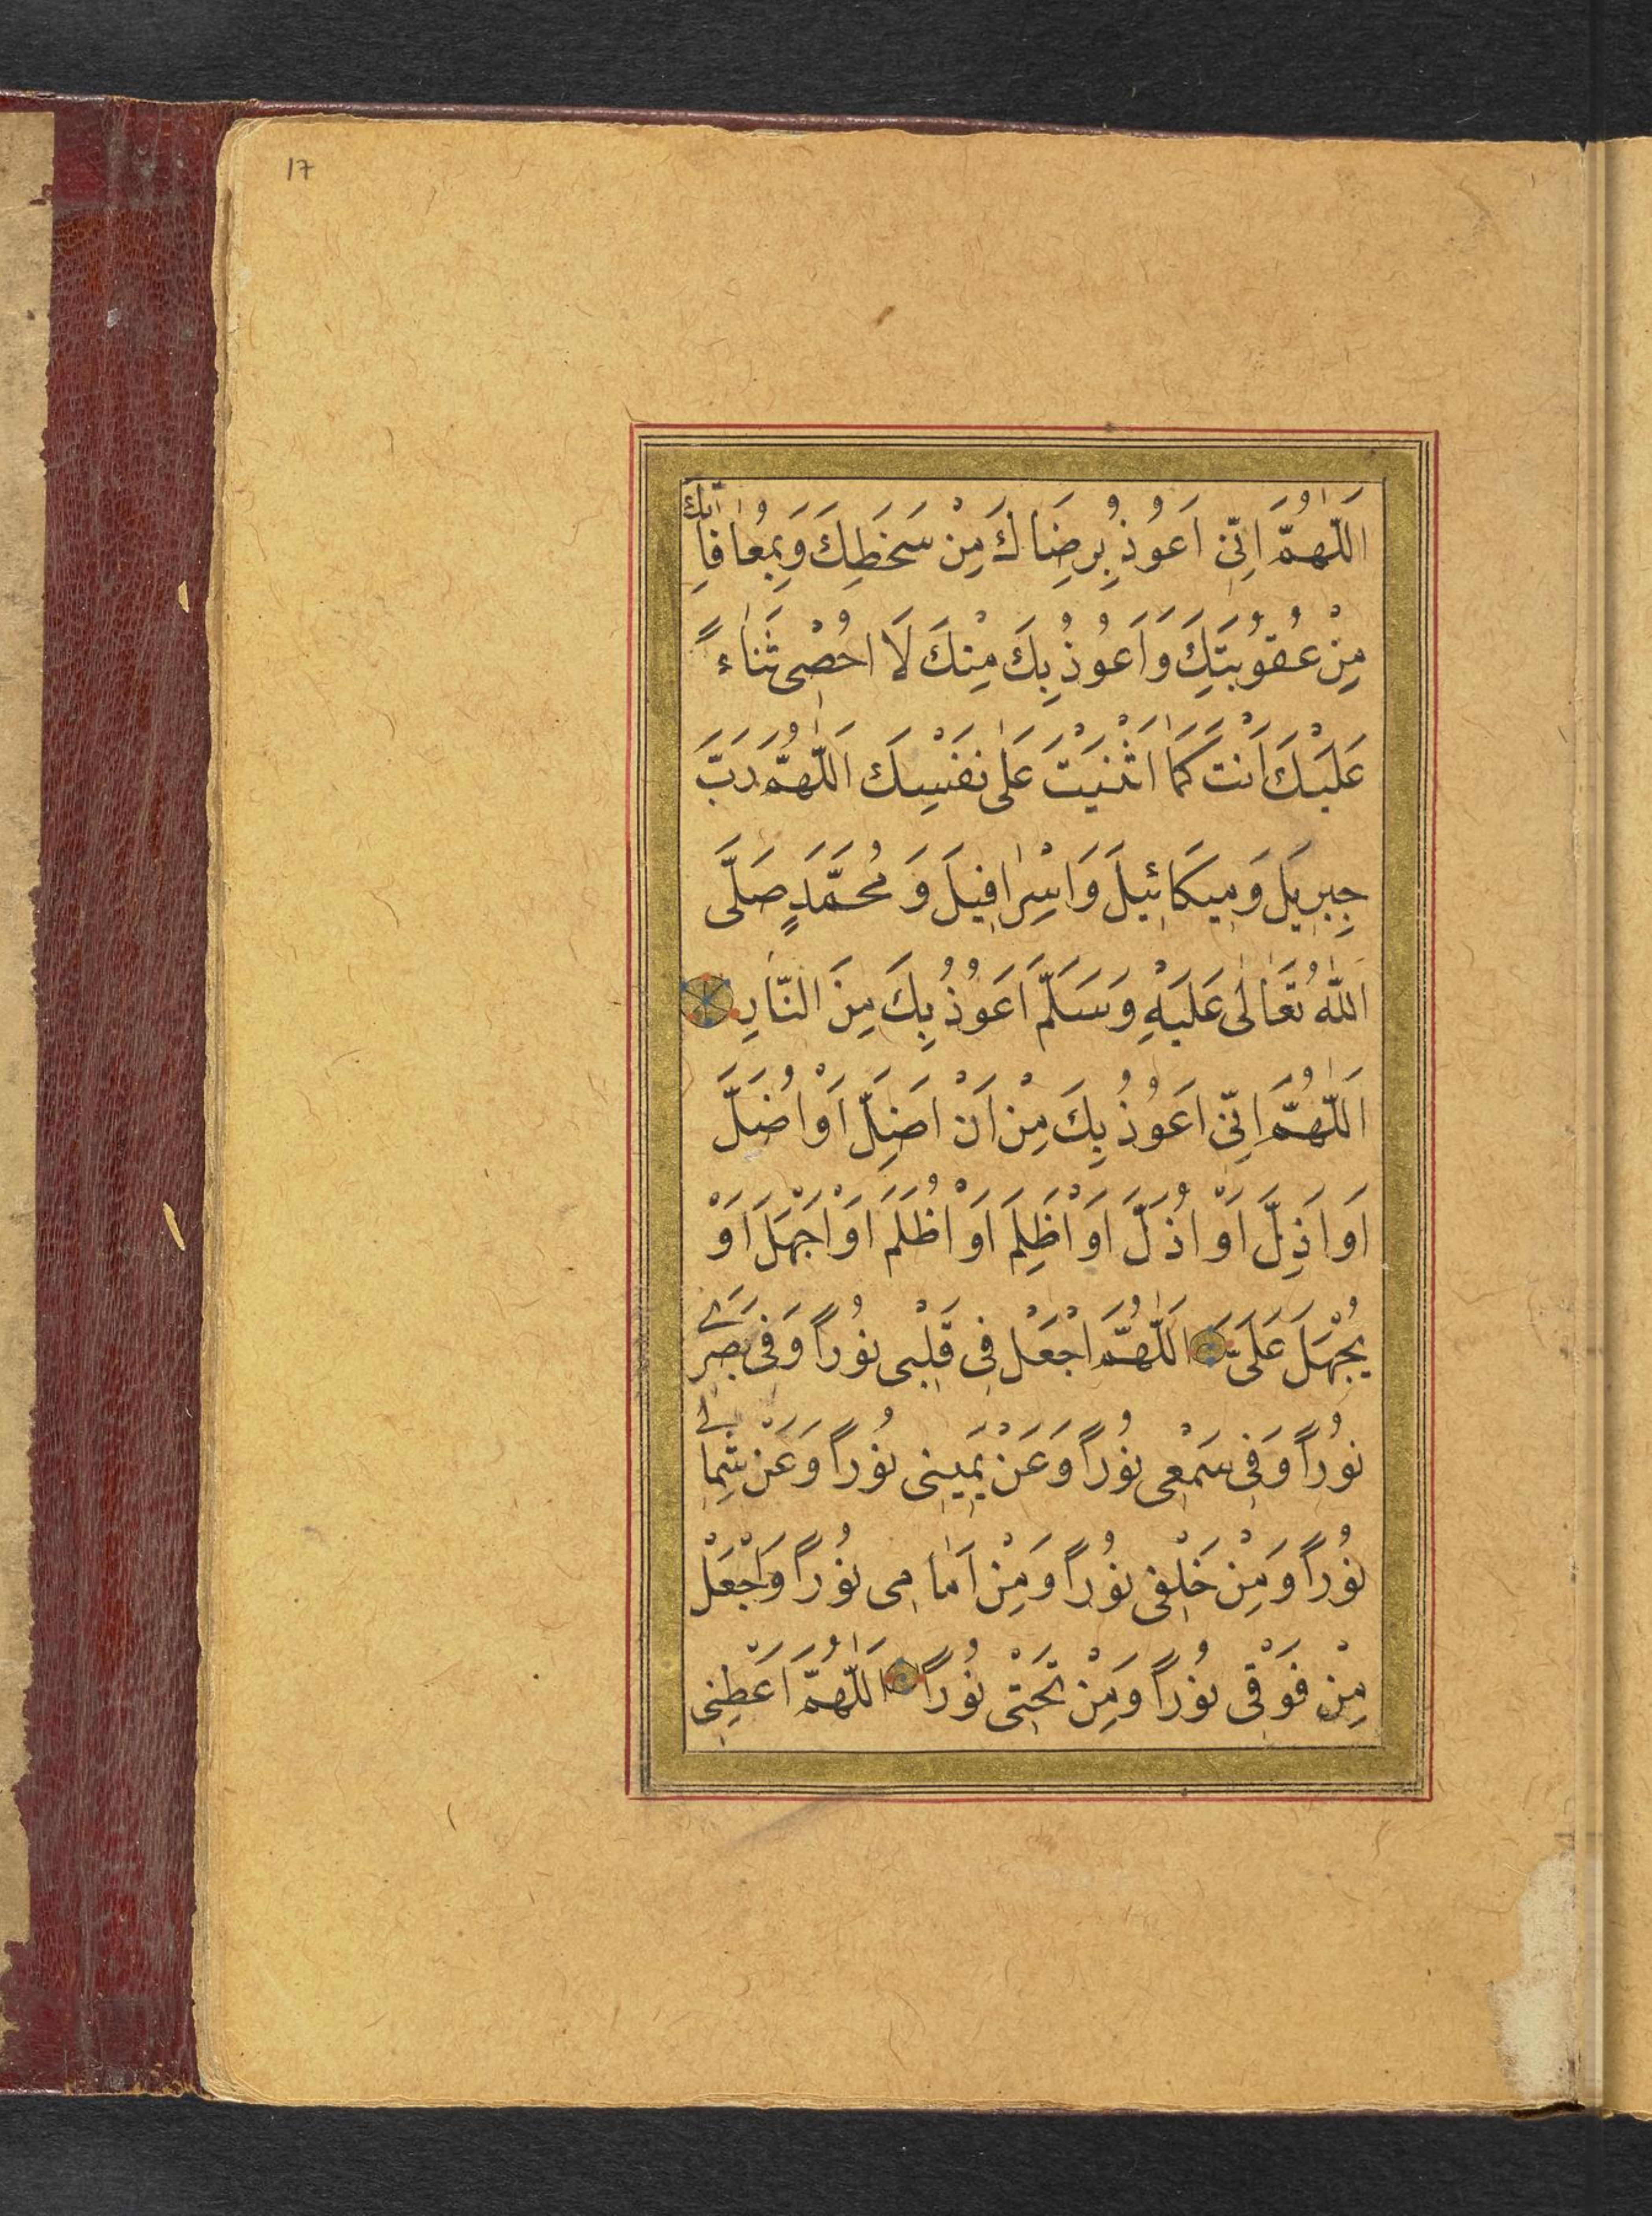 17
اَللّٰهُمَّ اِنِّى اَعُوْذُ بِرِضَاكَ مِنْ سَخَطِكَ وَبِمُعَافَاتِكَ
مِنْ عُقُوْبَتِكَ وَاَعُوْذُ بِكَ مِنْكَ لَا اُحْصِى ثَنَاءً
عَلَيْكَ اَنْتَ كَمَا اَثْنَيْتَ عَلٰى نَفْسِكَ اَللّٰهُمَّ رَبَّ
جِبرِيلَ وَمِيكَائِيلَ وَاِسْرٰافِيلَ وَ مُحَمَّدٍ صَلَّى
اللّٰهُ تَعَالٰى عَلَيْهِ وَسَلَّمَ اَعُوْذُ بِكَ مِنَ النَّارِ
اَللّٰهُمَّ اِنِّى اَعُوْذُ بِكَ مِنْ اَنْ اَضِلَّ اَوْ اُضَلَّ
اَو اَذِلَّ اَوْ اُذَلَّ اَوْ اَظْلِمَ اَوْ اُظْلَمَ اَوْ اَجْهَلَ اَوْ
يُجْهَلَ عَلَىَّ اَللّٰهُمَّ اجْعَلْ فِى قَلْبِى نُوْراً وَفِى بَصَرِى
نُوْراً وَفِى سَمْعِى نُوْراً وَعَنْ يَمِينِى نُوْراً وَعَنْ شِمَالِى
نُوْراً وَمِنْ خَلْفِى نُوْراً وَمِنْ اَمَامِى نُوْراً وَاجْعَلْ
مِنْ فَوْقِى نُوْراً وَمِنْ تَحْتِى نُوْراً اَللّٰهُمَّ اَعْطِنِى